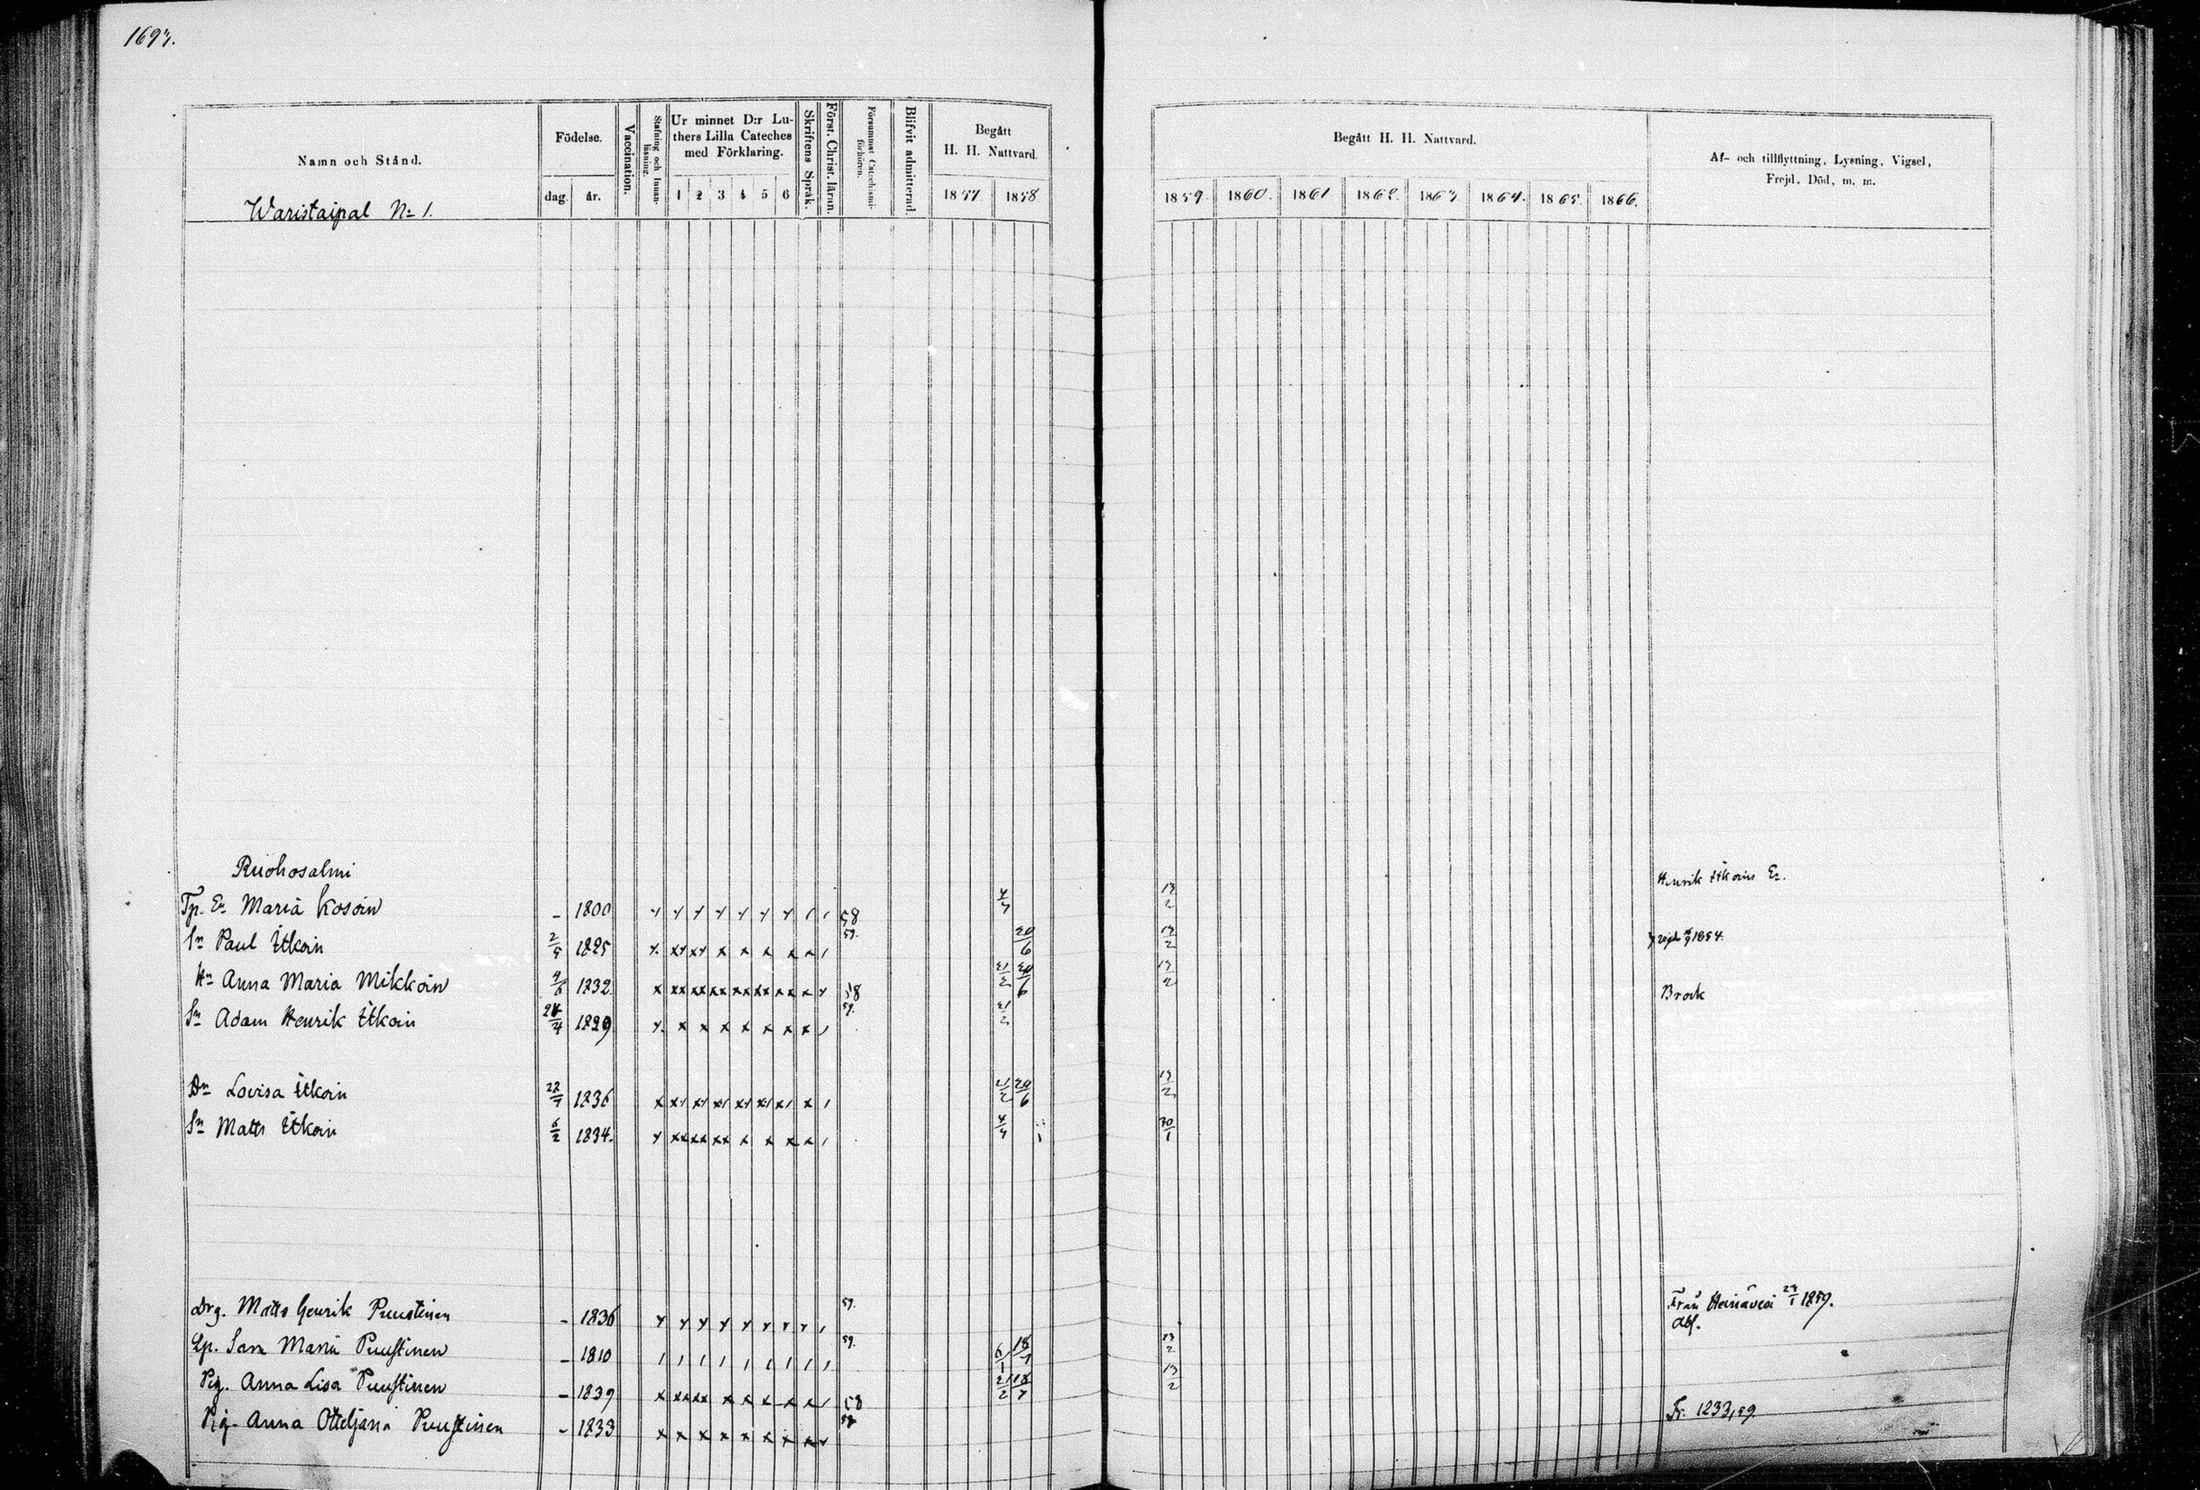 1693.
Namn och Stånd.
Födelse.
dag. år.
Vaccination.
Stafning och Innanläsning.
Ur minnet D:r Luthers Lilla Cateches med Förklaring.
1 2 3 4 5 6
Skriftens Språk.
Först. Christ. läran.
Försummat Catechismiförhören.
Blifvit admitterad.
Begått H. H. Nattvard.
1857 1858
Begått H. H. Nattvard.
1859. 1860. 1861 1862. 1863 1864. 1865. 1866.
Af- och tillflyttning, Lysning, Vigsel,
Frejd, Död, m. m.
Waristaipal No 1.
Ruohosalmi
Tp. En Maria Kosoin - 1800 58 4/7 13/2 Henrik Itkoins En.
Sn Paul Itkoin 2/5 1825 59. 20/6 13/2 1854.
Hn Anna Maria Mikkoin 4/6 1832. 58 21/2 20/6 13/2
Sn Adam Henrik Itkoin 24/4 1829 59. 21/2 Brock
Dn Lovisa Itkoin 22/7 1836 21/2 20/6 13/2
Sn Matts Itkoin 6/2 1834. 4/7 30/1
Drg. Matts Henrik Puustinen - 1836 59. Från Heinävesi 29/1 1859.
Abf.
Lp. Sara Maria Puustinen - 1810 59. 6/1 18/7 13/2
Pig. Anna Lisa Puustinen - 1839 58 21/2 18/7 13/2
Pig. Anna Otteljana Puustinen - 1833 Fr. 1233,59.